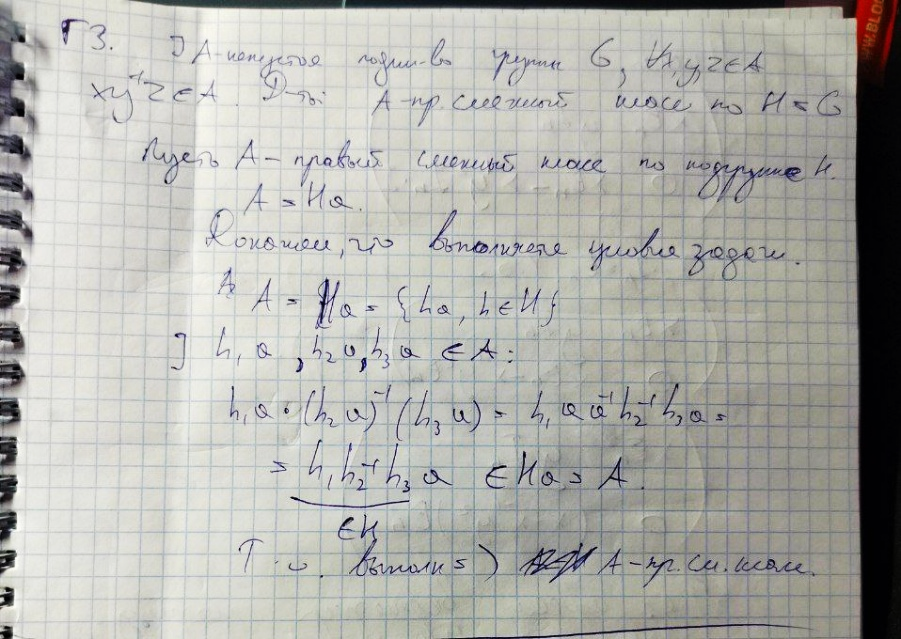 Г3. ] A-непустое подмн-во группы G, ∀x,y,z∈A
xy⁻¹z∈A. Д-ть: A-пр.смежный класс по H<G
Пусть A-правый смежный класс по подгруппе H.
A=Ha.
Докажем, что выполняется условие задачи.
A = Ha = {ha, h∈H}
] h₁a, h₂a, h₃a ∈A:
h₁a·(h₂a)⁻¹(h₃a) = h₁aa⁻¹h₂⁻¹h₃a =
= h₁h₂⁻¹h₃a ∈Ha=A.
∈H
выполн ⇒ A-пр.см.класс.